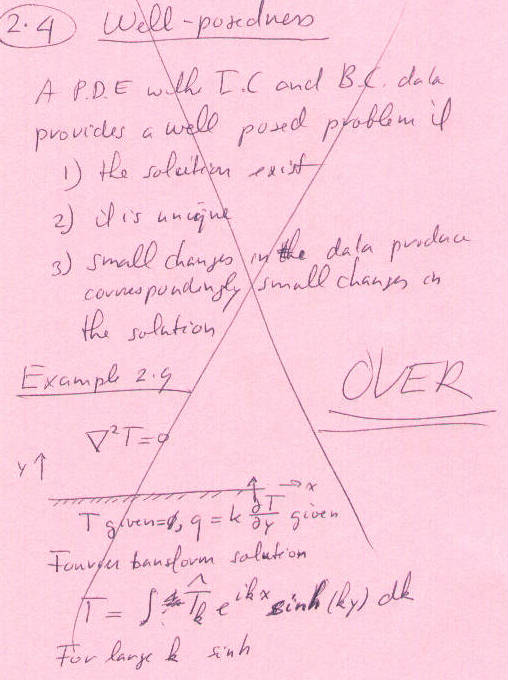 2.4 Well-posedness
A P.D.E with I.C and B.C. data
provides a well posed problem if
1) the solution exist
2) it is unique
3) small changes in the data produce
correspondingly small changes in
the solution
OVER
Example 2.9
∇²T=0
y↑ → x
T given=0, q = k ∂T/∂y given
Fourier transform solution
T = ∫ T̂_k e^{ikx} sinh(ky) dk
For large k sinh